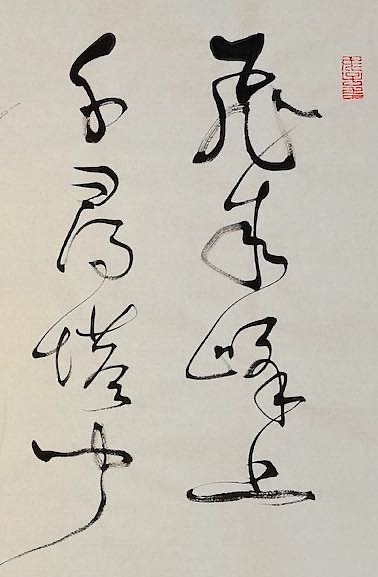 飛來峰上
千尋塔聞